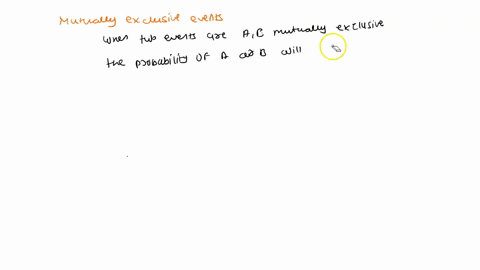 Mutually exclusive events
When two events are A,B mutually exclusive
the probability of A or B will